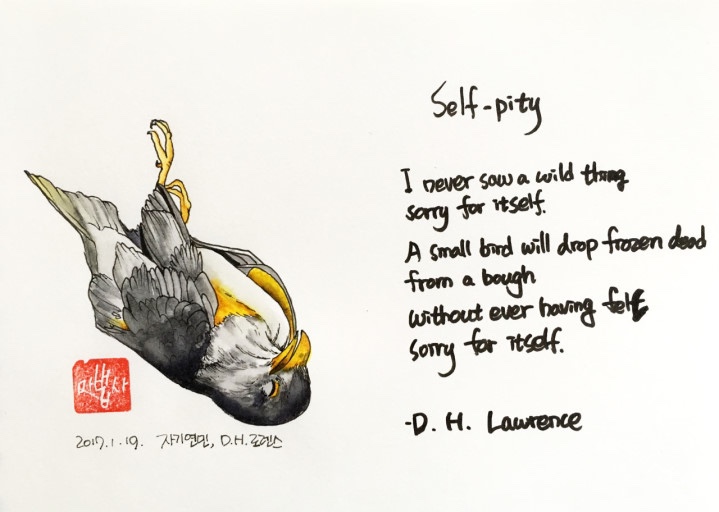 Self-pity
I never saw a wild thing
sorry for itself.
A small bird will drop frozen dead
from a bough
without ever having felt
sorry for itself.
-D. H. Lawrence
마법사
2017.1.19. 자기연민, D.H.로렌스